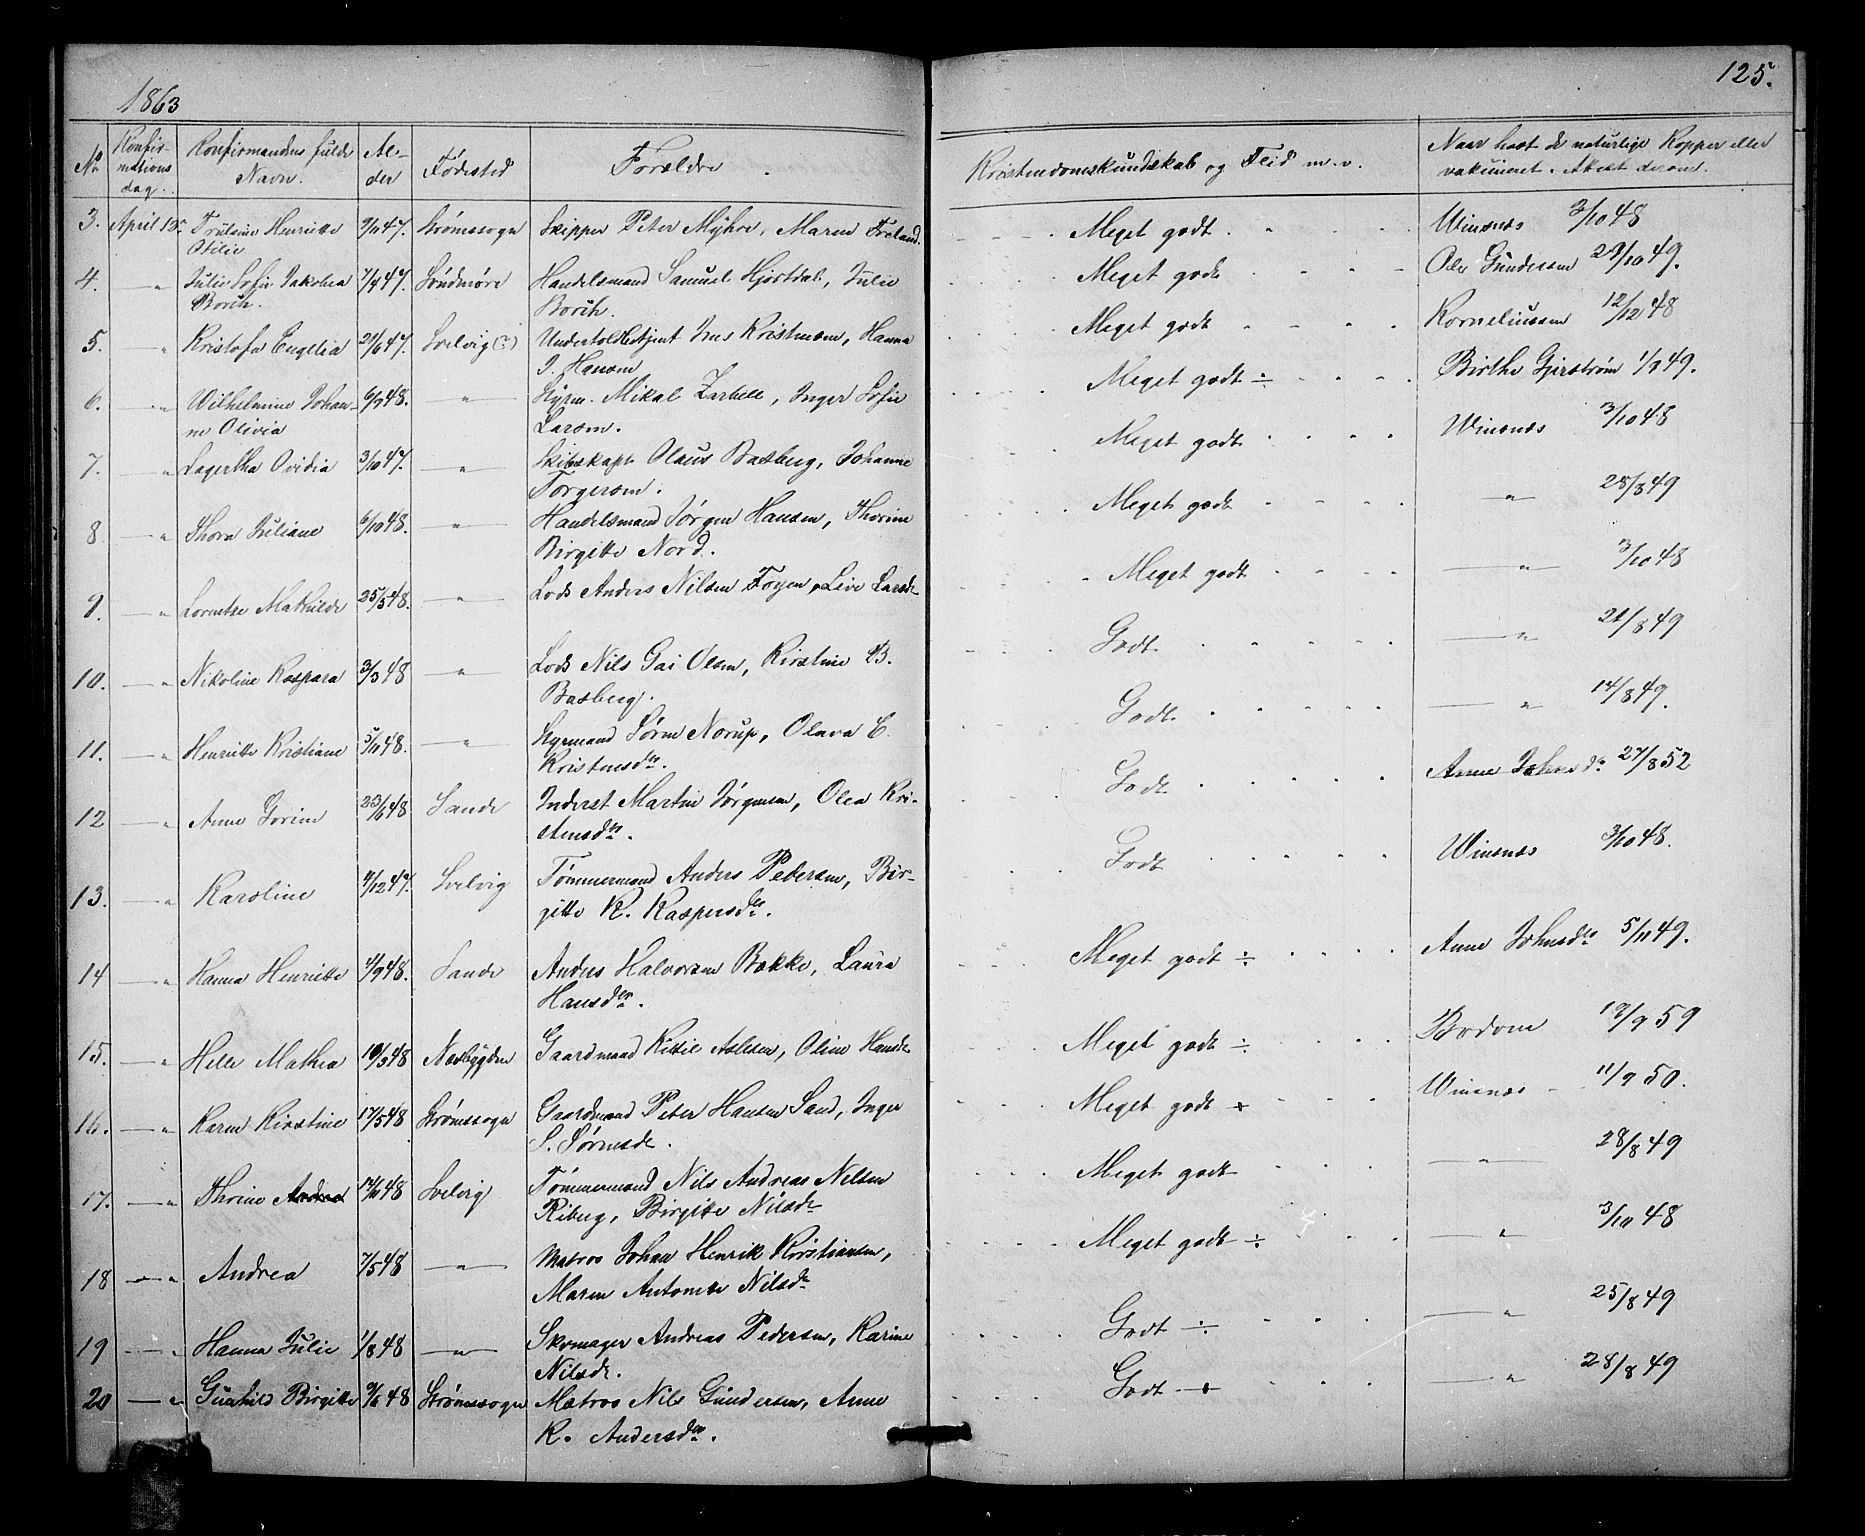 1863
125.
No Konfirmations dag. Konfirmandens fulde Navn. Alder Fødested Forældre. Kristendomskundskab og Flid m. v. Naar havt de naturlige Kopper eller vakcineret. Attest derom.
3. April 13. Henriette Otilie 47. Strømssogn Skipper Peter Myhre, Maren Meget godt Winsnæs 3/10 48
4. " Julie Sofie Jakobea Borch. 47. Søndmøre Handelsmand Samuel Hjortdal, Julie Borch. Meget godt Ole Gundersen 29/10 49.
5. " Kristofa Engelia 21/6 47. Svelvig (?) Undertoldbetjent Jens Kristensen, Hanna J. Hansen Meget godt Korneliussen 12/12 48
6. " Wilhelmine Johanne Olivia 48. " Styrm. Mikal Zarbell, Inger Sofie Larsen. Meget godt ÷ Birthe Gjerstrøm 49.
7. " Lagertha Ovidia 3/10 47. " Skibskapt Olaus Basberg, Johanne Torgersen. Meget godt Winsnæs 3/10 48
8. " Thora Juliane 6/10 48. " Handelsmand Jørgen Hansen, Thorine Birgitte Nord. Meget godt " 28/8 49
9. " Lorentse Mathilde 25/5 48. " Lods Anders Nilsen Foyen, Live Larsdr Meget godt " 3/10 48
10. " Nikoline Kaspara 3/3 48 " Lods Nils Gai Olsen, Kirstine B. Basberg. Godt. " 21/8 49
11. " Henriette Kristiane 48. " Styrmand Søren Norup, Olava C. Kristensdtr. Godt. " 14/8 49.
12 " Anne Jorine 23/6 48 Sande Inderst Martin Jørgensen, Olea Kristensdtr. Godt Anne Johnsdr 27/8 52
13. " Karoline 47. Svelvig Tømmermand Anders Pedersen, Birgitte K. Kaspersdtr. Godt Winsnæs 3/10 48.
14 " Hanna Henriette 48. Sande Anders Halvorsen Bække, Laura Hansdtr. Meget godt ÷ Anne Johnsdtr 5/11 49.
15. " Helle Mathea 48 Nesbygden Gaardmand Kittil Aslesen, Oline Hansdr Meget godt ÷ Bodom 19/9 59
16. " Karen Kirstine 17/5 48 Strømssogn Gaardmand Peter Hansen Sand, Inger S. Sørensdr. Meget godt + Winsnæs 11/9 50.
17. " Thrine Andrea 48 Svelvig Tømmermand Nils Andreas Nilsen Riberg, Birgitte Nilsdr Meget godt " 28/8 49
18 " Andrea 7/5 48 " Matros Johan Henrik Kristiansen, Maren Antonette Nilsdr Meget godt ÷ " 3/10 48
19 " Hanna Julie 1/8 48 " Skomager Andreas Pedersen, Karine Nilsdr. Godt ÷ " 25/8 49
20 " Gunhild Birgitte 48 Strømssogn Matros Nils Gundersen, Anne K. Andersdtr. Godt + " 28/8 49